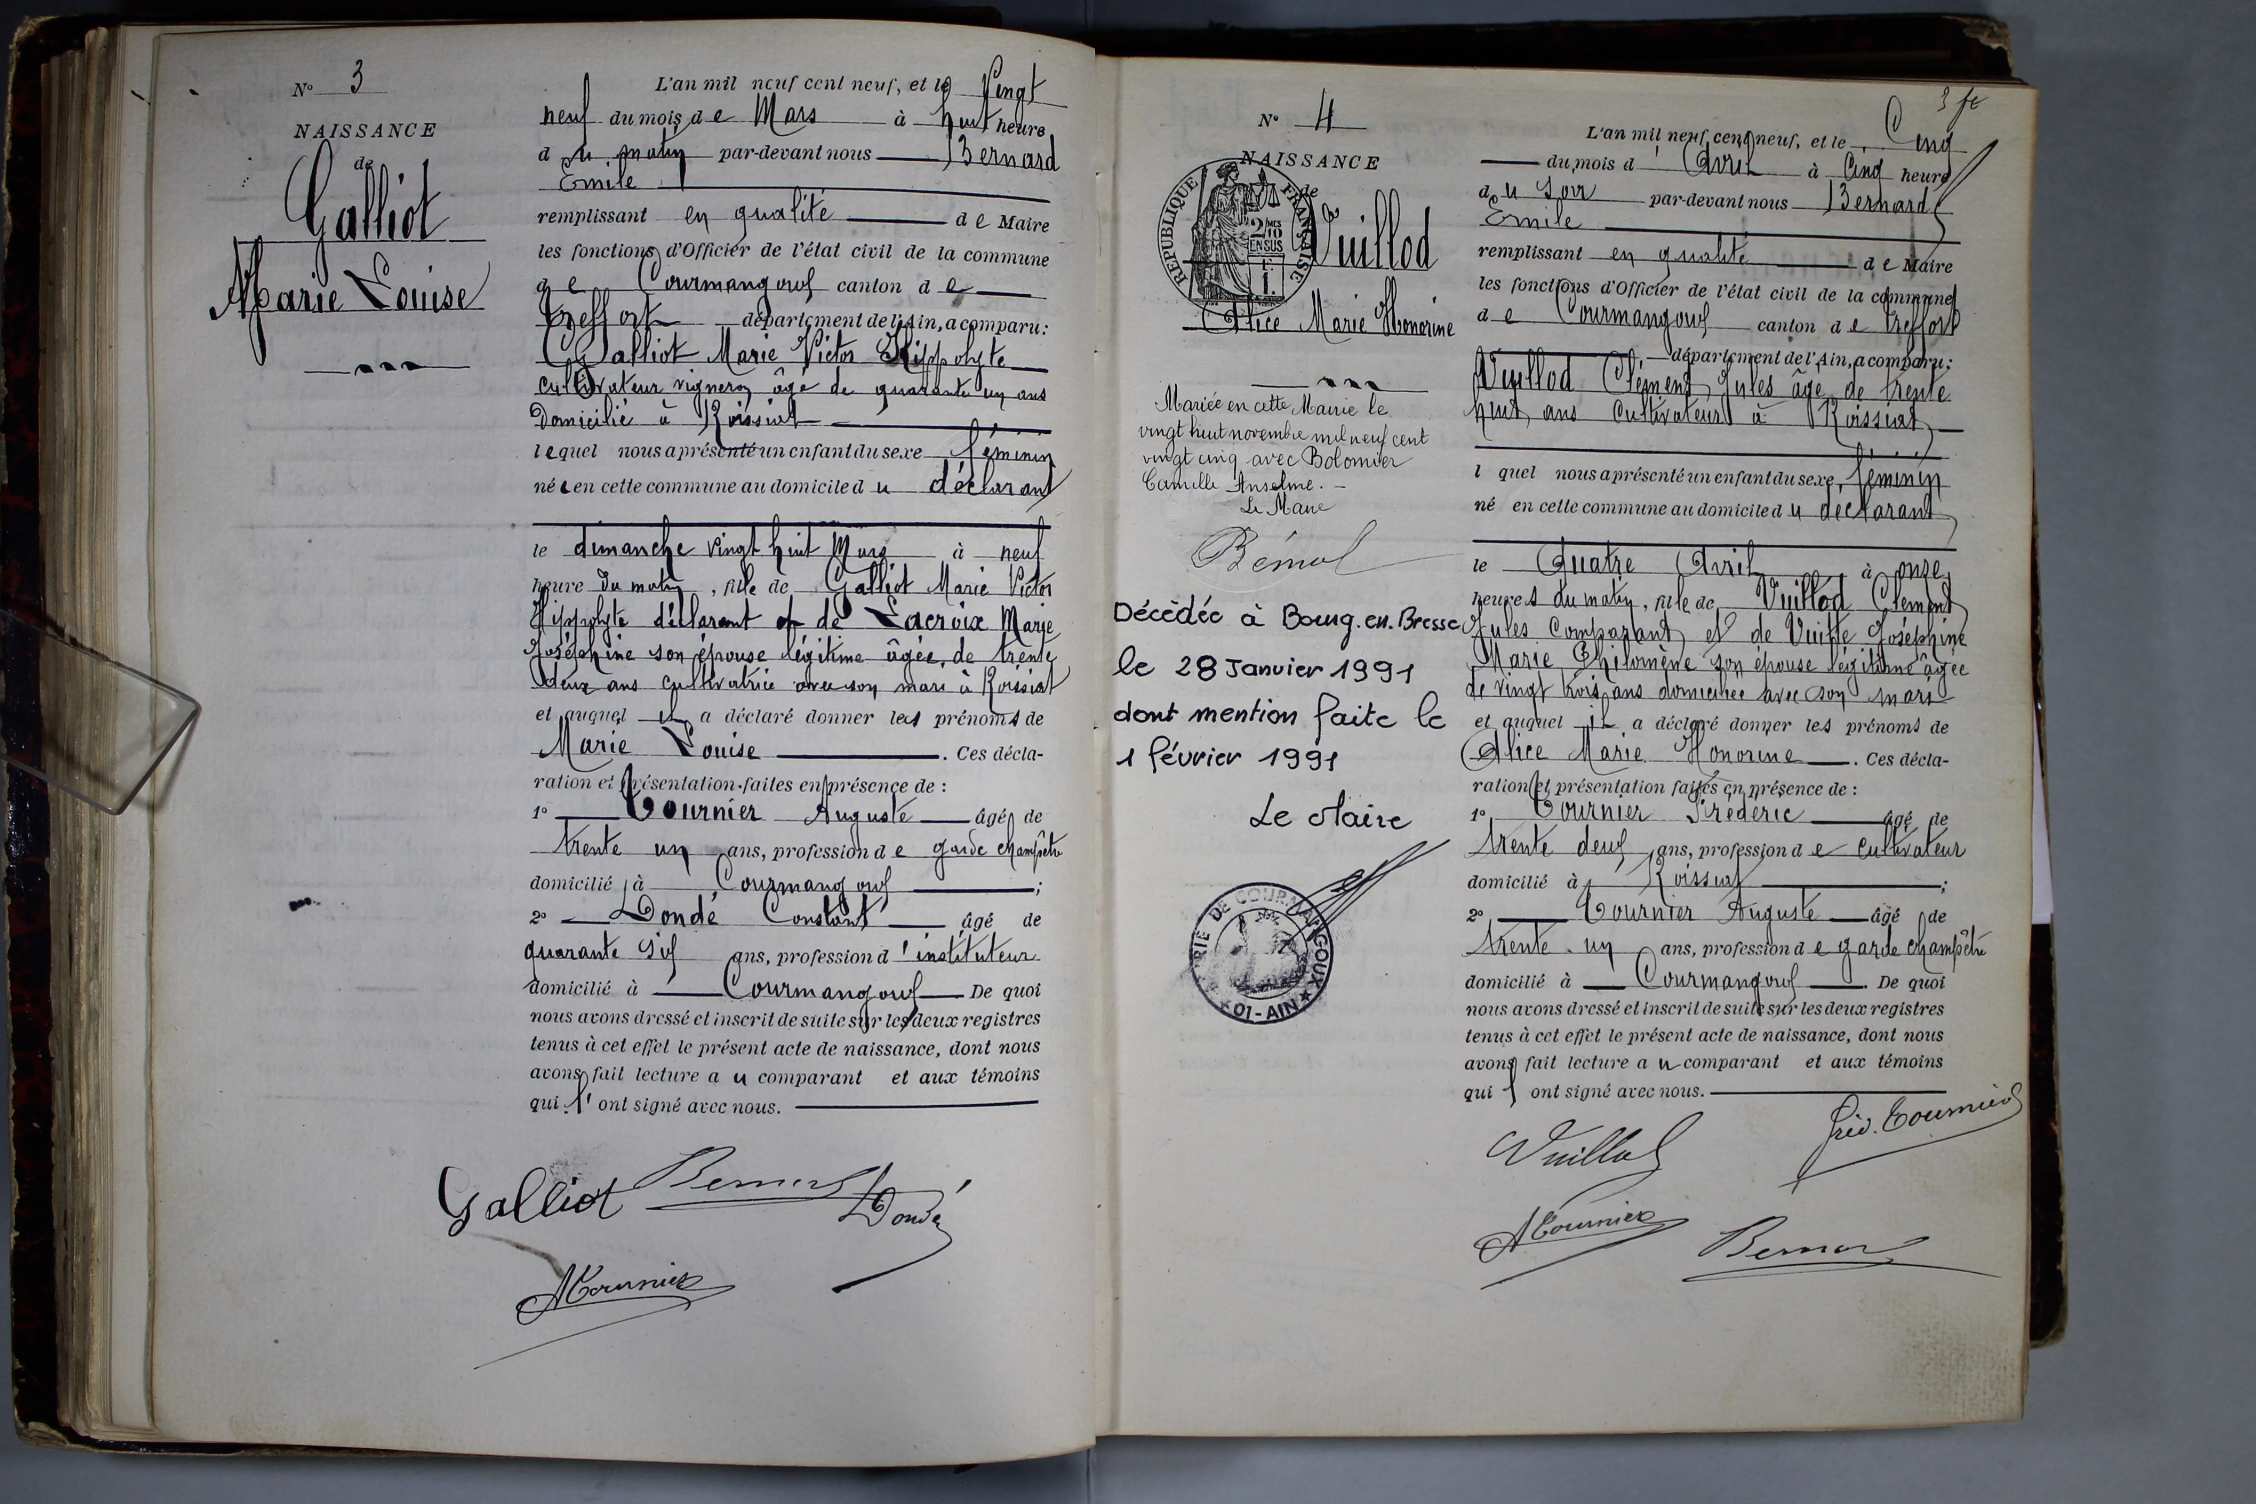 N° 3
NAISSANCE
de
Galliot
Marie Louise
L'an mil neuf cent neuf, et le Vingt
neuf du mois de Mars à huit heure
du matin par-devant nous Bernard
Emile
remplissant en qualité de Maire
les fonctions d'Officier de l'état civil de la commune
de Courmangoux canton de
Treffort département de l'Ain, a comparu:
Galliot Marie Victor Hippolyte
cultivateur vigneron âgé de quarante un ans
domicilié à Roissiat
lequel nous a présenté un enfant du sexe féminin
née en cette commune au domicile du déclarant
le dimanche vingt huit Mars à neuf
heure du matin, fille de Galliot Marie Victor
Hippolyte déclarant et de Lacroix Marie
Joséphine son épouse légitime âgée de trente
deux ans cultivatrice avec son mari à Roissiat
et auquel il a déclaré donner les prénoms de
Marie Louise. Ces décla-
ration et présentation faites en présence de :
1° Tournier Auguste âgé de
trente un ans, profession de garde champêtre
domicilié à Courmangoux ;
2° Dondé Constant âgé de
quarante six ans, profession d'instituteur
domicilié à Courmangoux De quoi
nous avons dressé et inscrit de suite sur les deux registres
tenus à cet effet le présent acte de naissance, dont nous
avons fait lecture au comparant et aux témoins
qui l'ont signé avec nous.
Galliot Bernard Dondé
A Tournier
3 fe
N° 4
NAISSANCE
de
RÉPUBLIQUE FRANÇAISE
2/10 MES
EN SUS
1 F.
Vuillod
Alice Marie Honorine
Mariée en cette Mairie le
vingt huit novembre mil neuf cent
vingt cinq avec Bolomier
Camille Anselme. -
Le Maire
Décédée à Bourg.en.Bresse
le 28 Janvier 1991
dont mention faite le
1 février 1991
Le Maire
MAIRIE DE COURMANGOUX
★ 01-AIN ★
L'an mil neuf cent neuf, et le Cinq
du mois d'Avril à Cinq heure
du soir par-devant nous Bernard
Emile
remplissant en qualité de Maire
les fonctions d'Officier de l'état civil de la commune
de Courmangoux canton de Treffort
département de l'Ain, a comparu:
Vuillod Clément Jules âgé de trente
huit ans cultivateur à Roissiat
l quel nous a présenté un enfant du sexe féminin
né en cette commune au domicile du déclarant
le Quatre Avril à onze
heures du matin, fille de Vuillod Clément
Jules comparant et de Joséphine
Marie Philomène son épouse légitime âgée
de vingt trois ans domiciliée avec son mari
et auquel il a déclaré donner les prénoms de
Alice Marie Honorine. Ces décla-
ration et présentation faites en présence de :
1° Tournier Fréderic âgé de
trente deux ans, profession de cultivateur
domicilié à Roissiat ;
2° Tournier Auguste âgé de
trente un ans, profession de garde champêtre
domicilié à Courmangoux. De quoi
nous avons dressé et inscrit de suite sur les deux registres
tenus à cet effet le présent acte de naissance, dont nous
avons fait lecture au comparant et aux témoins
qui l ont signé avec nous.
Vuillod Fréd. Tournier
A Tournier Bernard